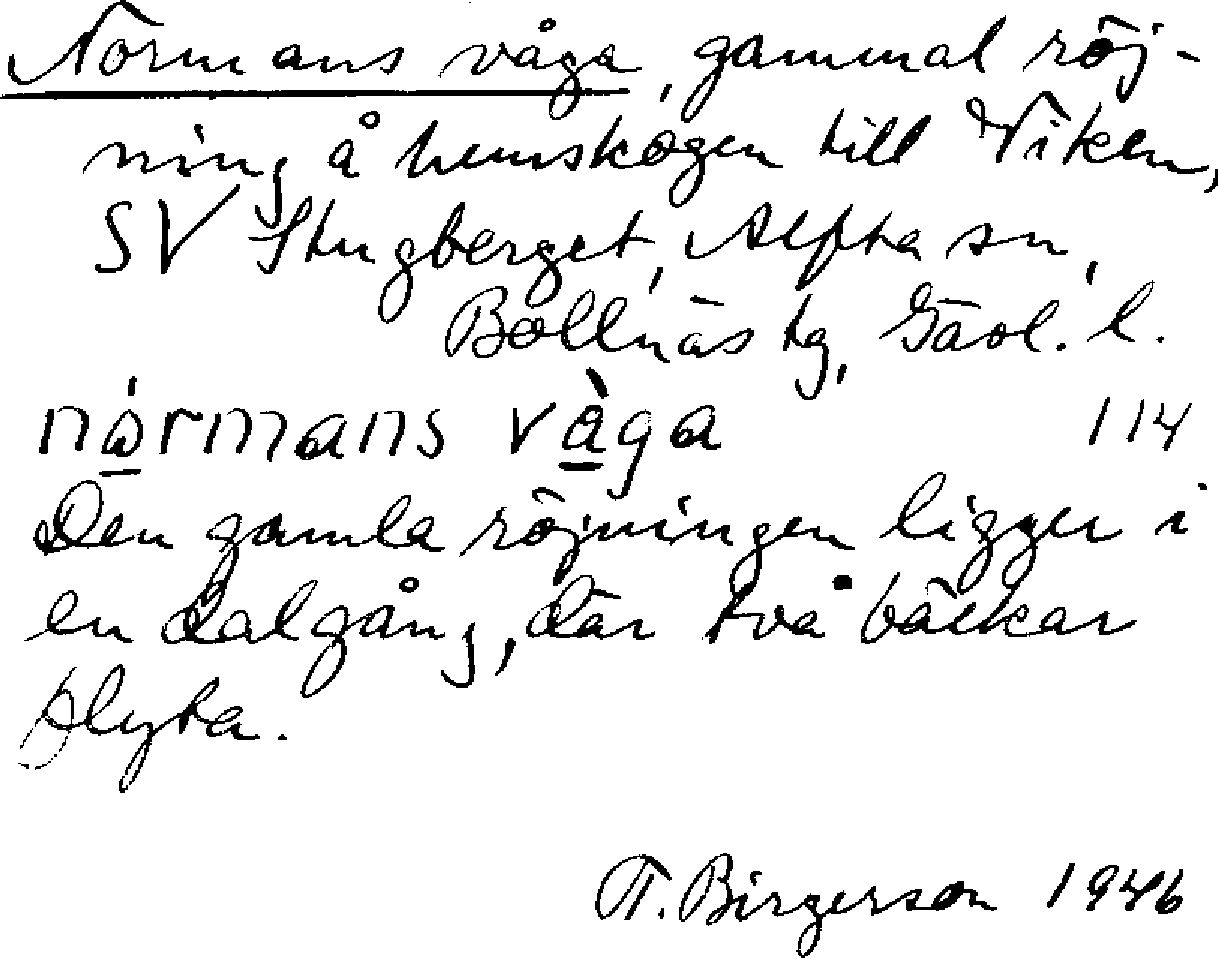 Normans våga, gammal röj-
ning å hemskogen till Viken,
SV Stugberget, Alfta sn,
Bollnäs tg, Gävl. l.
nȧrmans vàga 114
Den gamla röjningen ligger i
en dalgång, där två bäckar
flyta.
T. Birgerson 1946